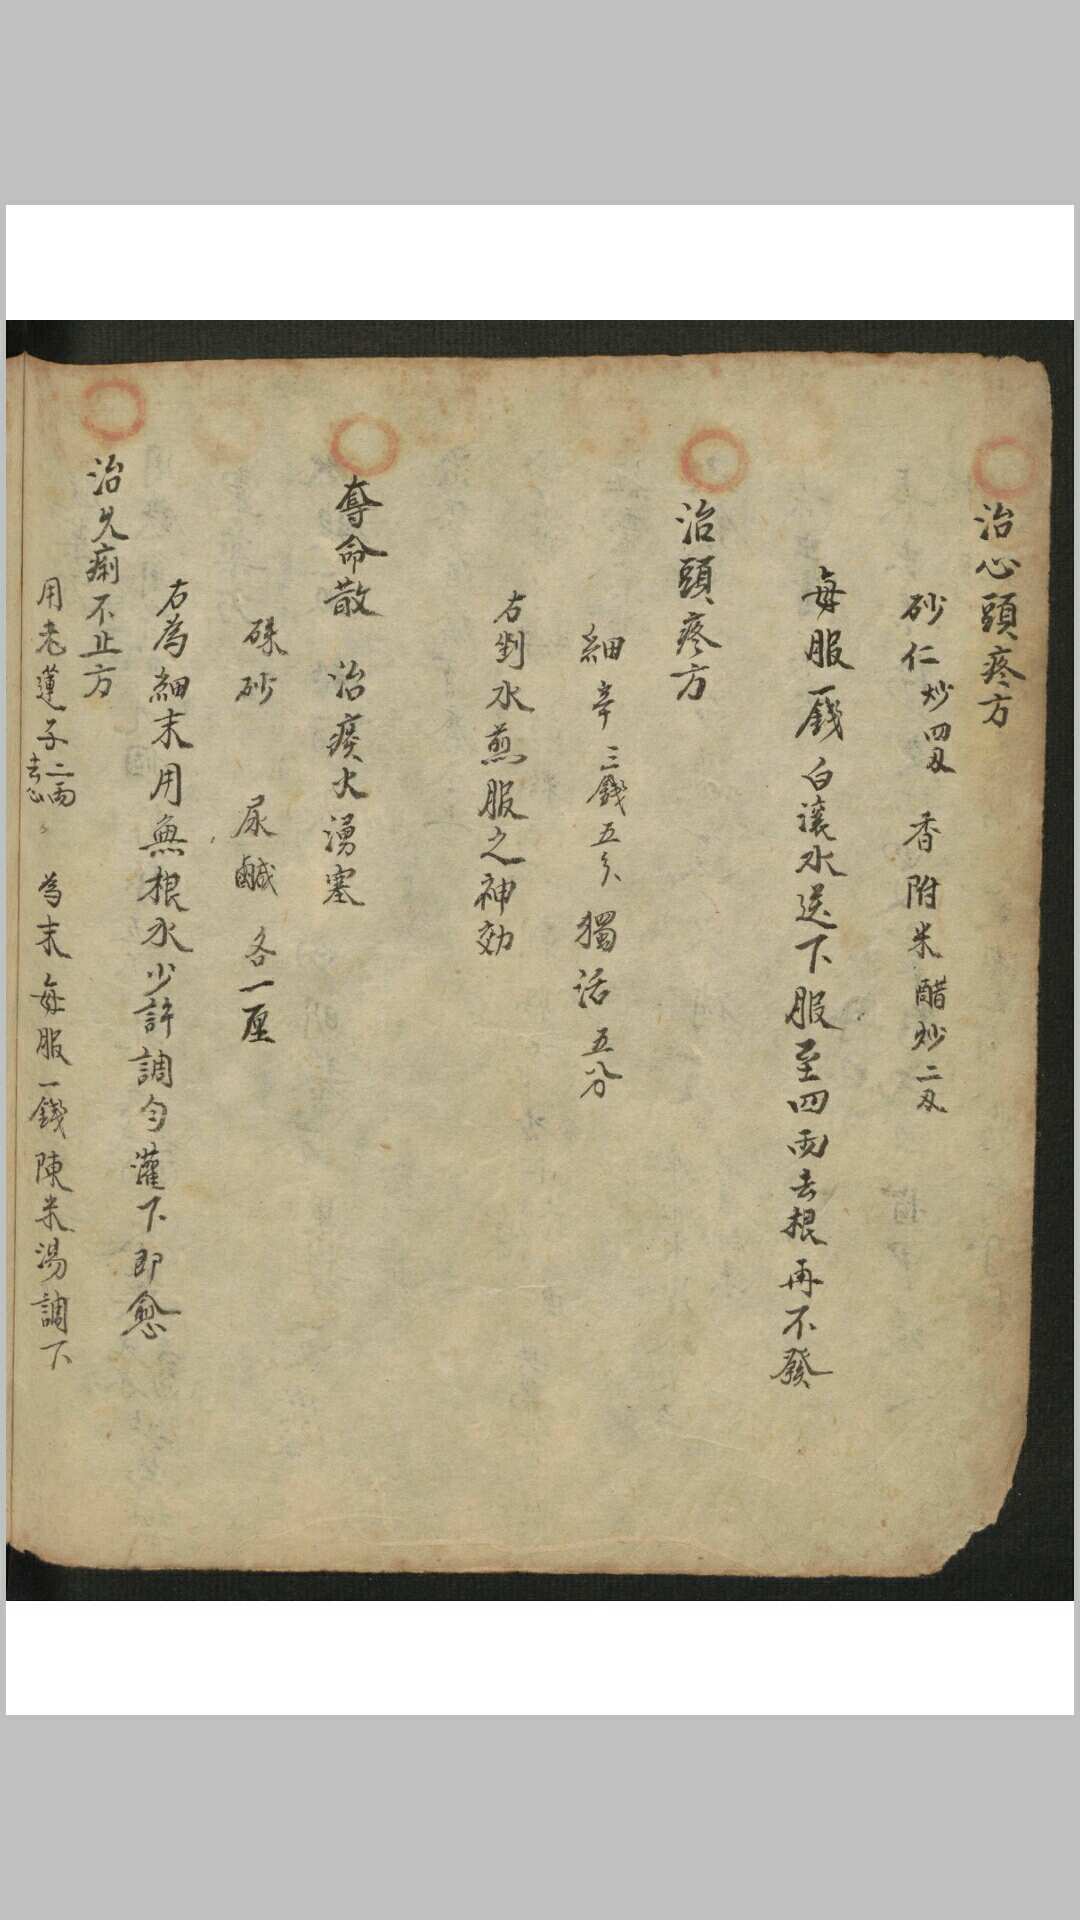 治心頭疼方
砂仁炒四両 香附米醋炒二両
每服一錢白滾水送下服至四両去根再不發
治頭疼方
細辛三錢五分 獨活五分
右剉水煎服之神効
奪命散 治痰火湧塞
硃砂 尿鹹 各一厘
右為細末用無根水少許調勻灌下即愈
治兒痢不止方
用老蓮子二両去心 為末每服一錢陳米湯調下